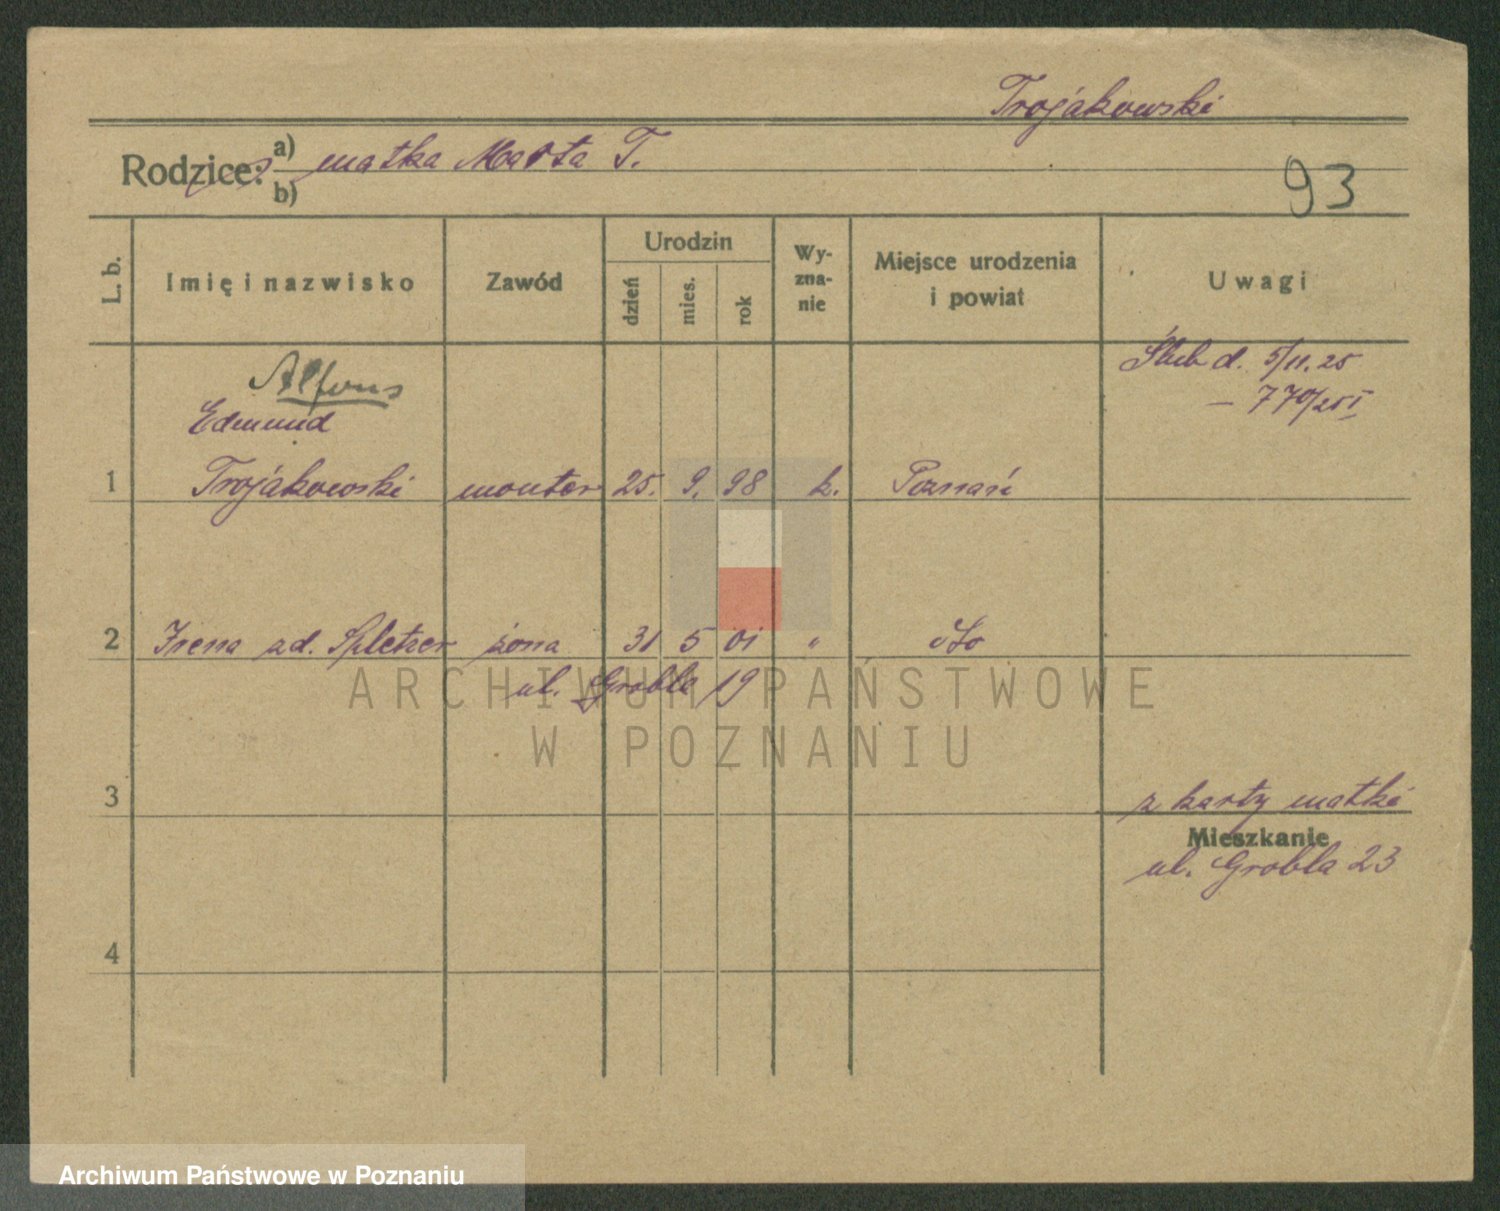 Trojakowski
Rodzice: a) matka Marta T.
b)
93
L. b.
Imię i nazwisko
Zawód
Urodzin
dzień
mies.
rok
Wy-
zna-
nie
Miejsce urodzenia
i powiat
Uwagi
Ślub d. 5/11.25
– 770/25 I
Alfons
Edmund
1 Trojakowski monter 25. 9. 98 k. Poznań
2 Irena zd. Spletzer żona 31 5 01 " dto
ul. Grobla 19
ARCHIWUM PAŃSTWOWE
W POZNANIU
3
z karty matki
Mieszkanie
ul. Grobla 23
4
Archiwum Państwowe w Poznaniu